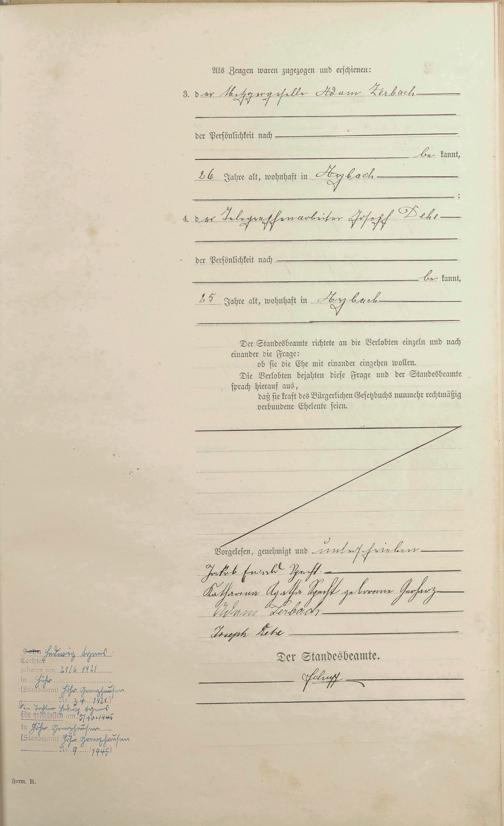 Als Zeugen waren zugezogen und erschienen:
3. der Metzgergeselle Adam Zerbach
der Persönlichkeit nach
be kannt,
26 Jahre alt, wohnhaft in
;
4. der Telegraphenarbeiter Joseph
der Persönlichkeit nach
be kannt,
25 Jahre alt, wohnhaft in
Der Standesbeamte richtete an die Verlobten einzeln und nach
einander die Frage:
ob sie die Ehe mit einander eingehen wollen.
Die Verlobten bejahten diese Frage und der Standesbeamte
sprach hierauf aus,
daß sie kraft des Bürgerlichen Gesetzbuchs nunmehr rechtmäßig
verbundene Eheleute seien.
Vorgelesen, genehmigt und unterschrieben
Jakob
Katharina Agatha geborene
Adam Zerbach
Joseph
Der Standesbeamte.
Hedwig Agnes
Tochter
geboren am 21/6 1921
in Höhr
(Standesamt Höhr Grenzhausen
1921)
Die Tochter Hedwig Agnes
am 5/10 1945
in Höhr Grenzhausen
(Standesamt Höhr Grenzhausen
Nr. 9 1945)
Form. B.